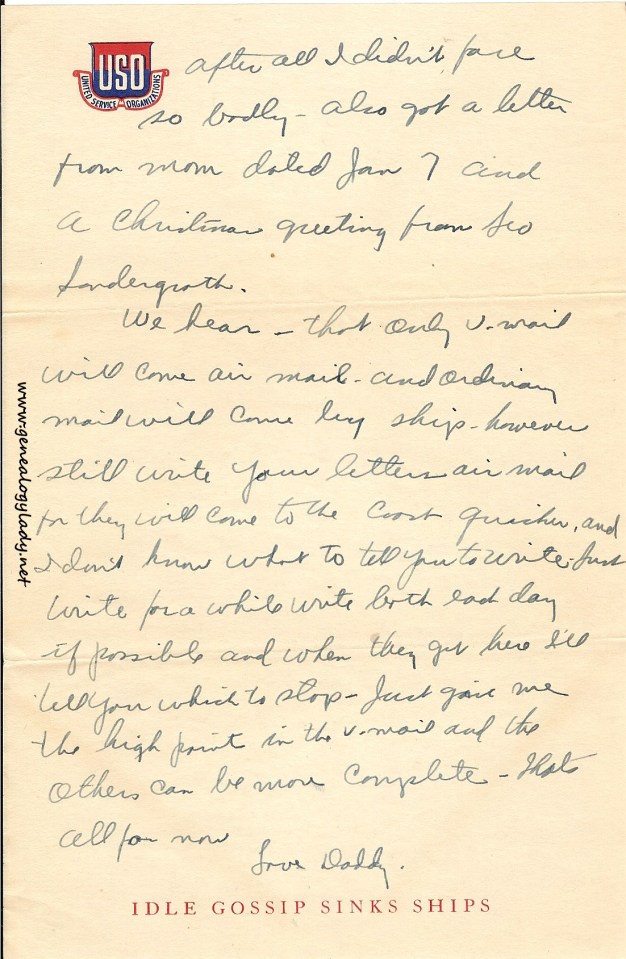 USO
UNITED SERVICE ORGANIZATIONS
after all I didn't fare
so badly - also got a letter
from mom dated Jan 7 and
a Christmas greeting from Leo
Sondergroth.
We hear - that only V-mail
will come air mail - and ordinary
mail will come by ship - however
still write your letters air mail
for they will come to the coast quicker, and
I don't know what to tell you to write - Just
write for a while write both each day
if possible and when they get here I'll
tell you which to stop - Just give me
the high point in the v-mail and the
others can be more complete - Thats
all for now
Love Daddy.
IDLE GOSSIP SINKS SHIPS
www.genealogylady.net